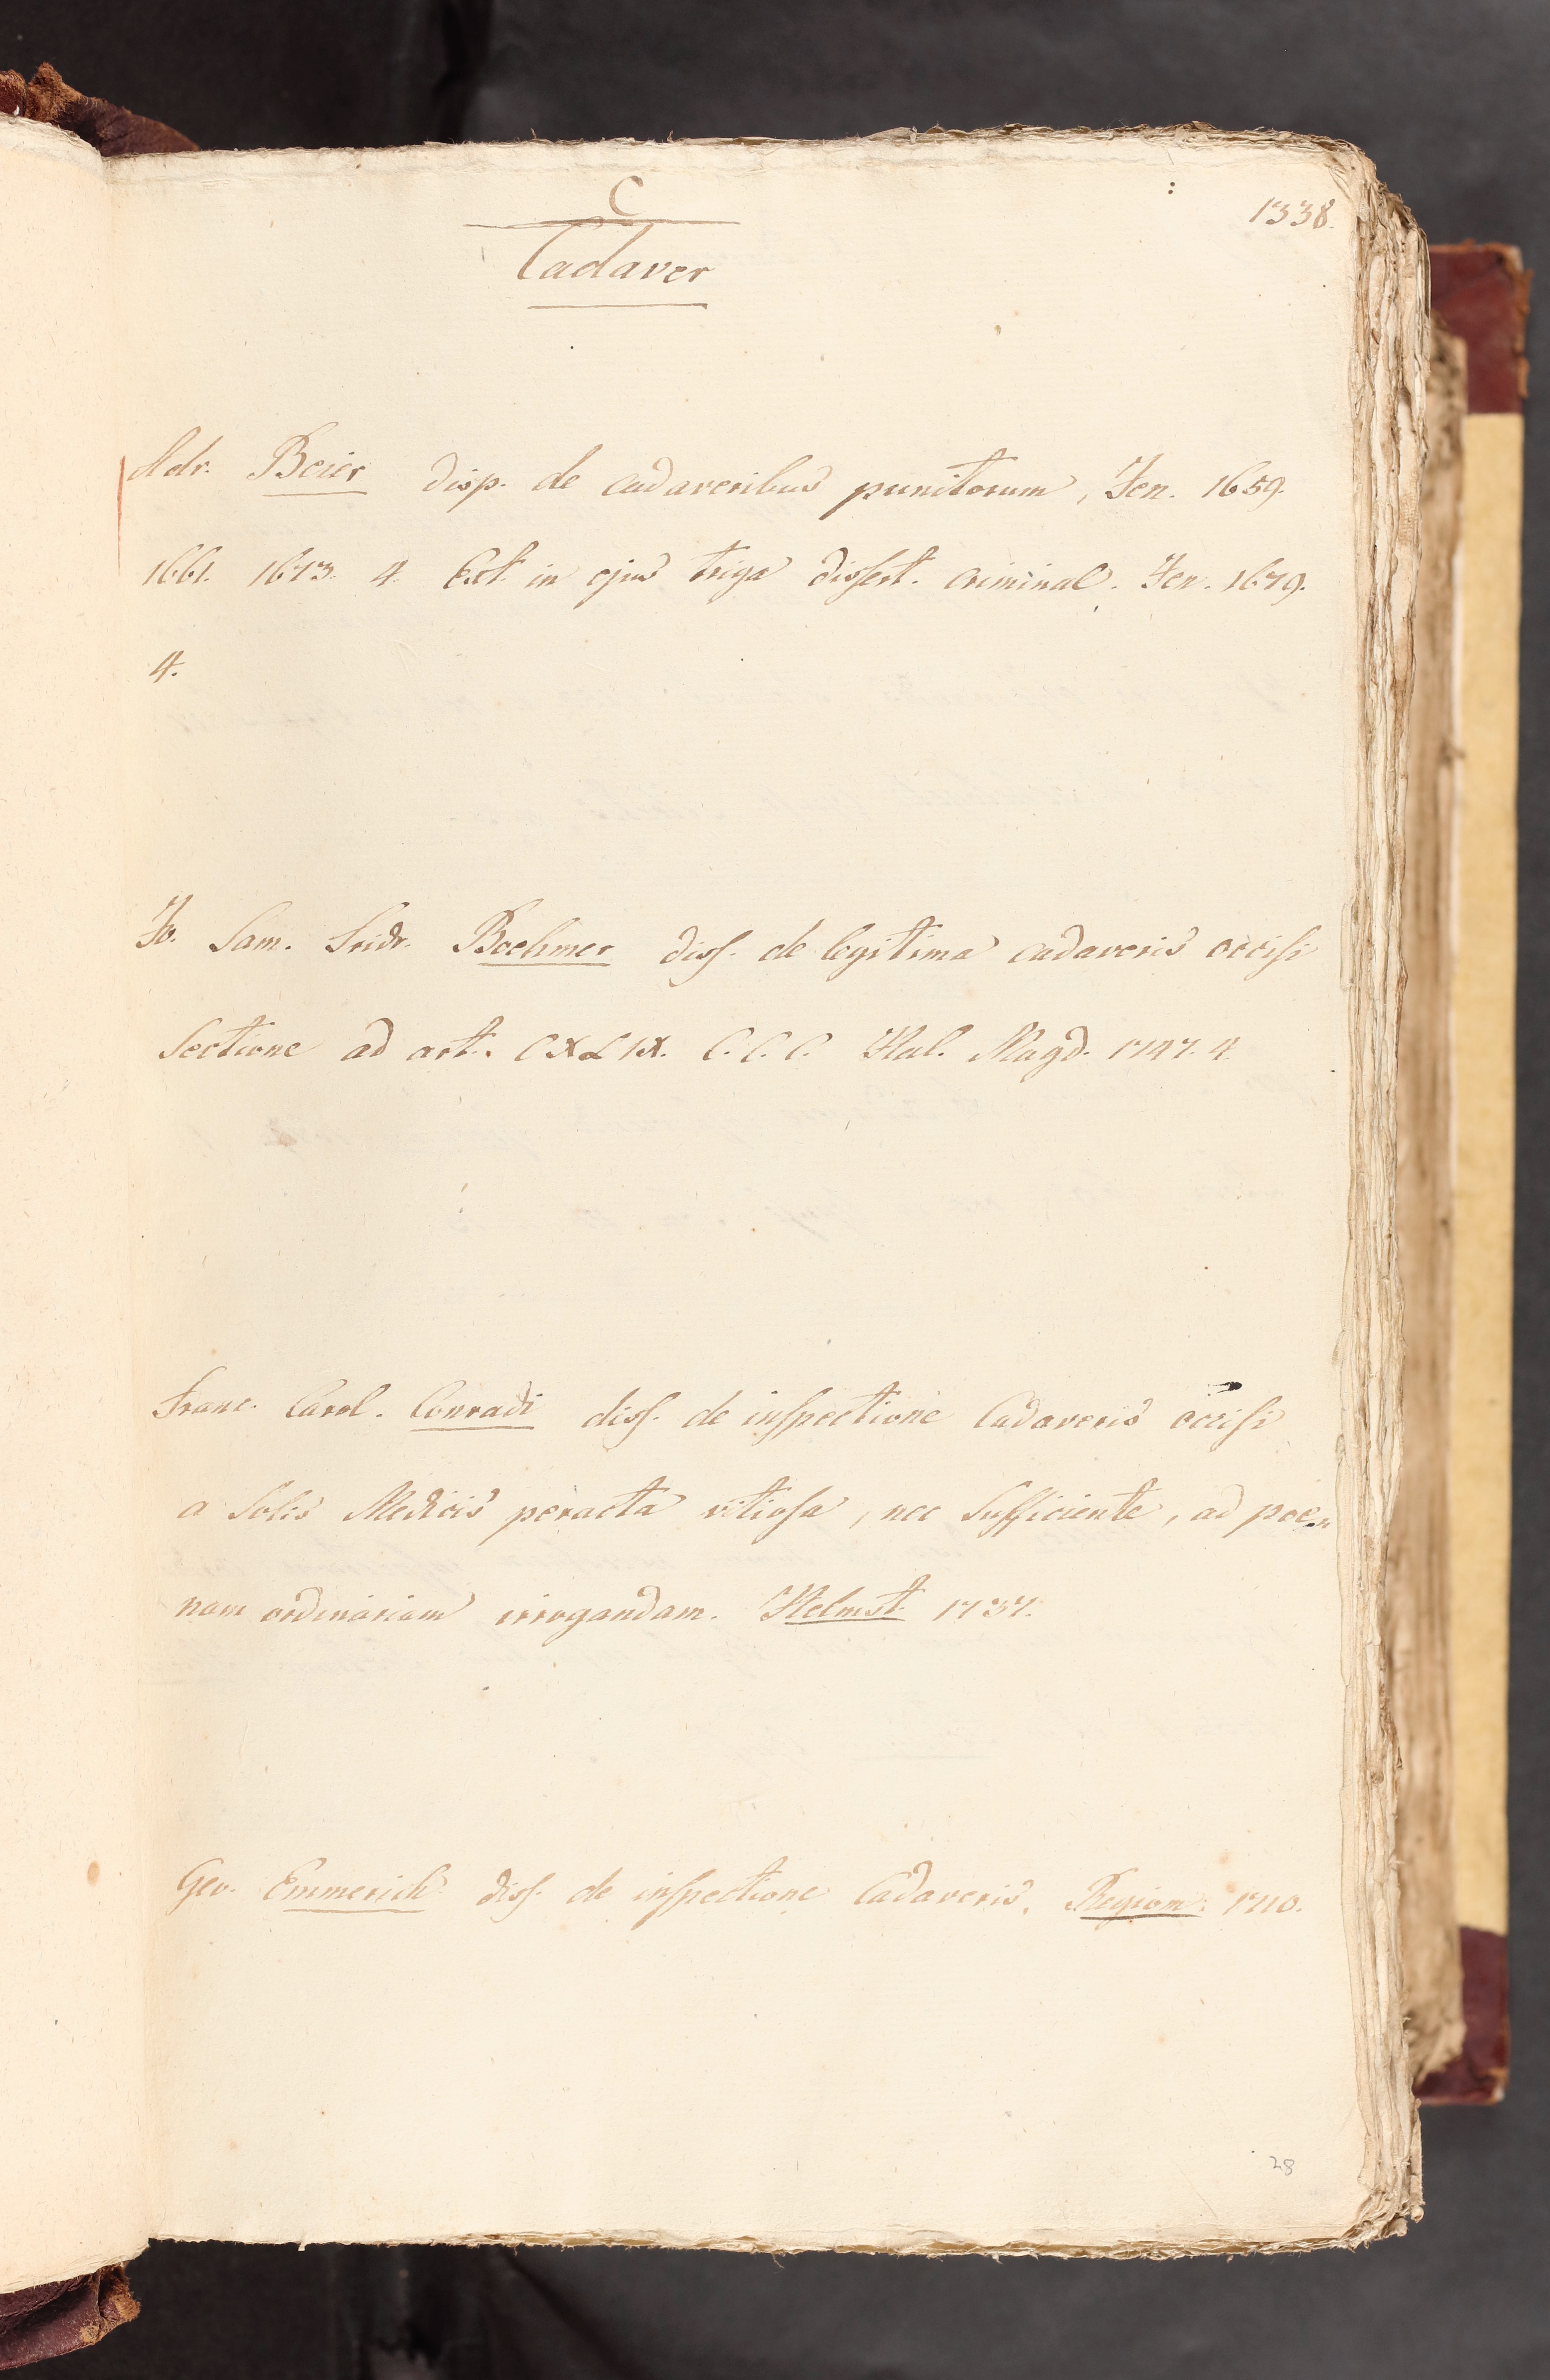 C
1338.
Cadaver
Adr. Beier disp. de cadaveribus punitorum, Jen. 1659.
1661. 1673. 4. Ext. in ejus triga dissert. criminal. Jen. 1679.
4.
Jo. Sam. Fridr. Boehmer diss. de legitima cadaveris occisi
Sectione ad art. CXLIX. C.C.C. Hal. Magd. 1747. 4
Franc. Carol. Conradi diss. de inspectione Cadaveris occisi
a Solis Medicis peracta vitiosa, nec Sufficiente, ad poe-
nam ordinariam irrogandam. Helmst. 1737.
Geo. Emmerich diss. de inspectione Cadaveris. Regiom. 1710.
28